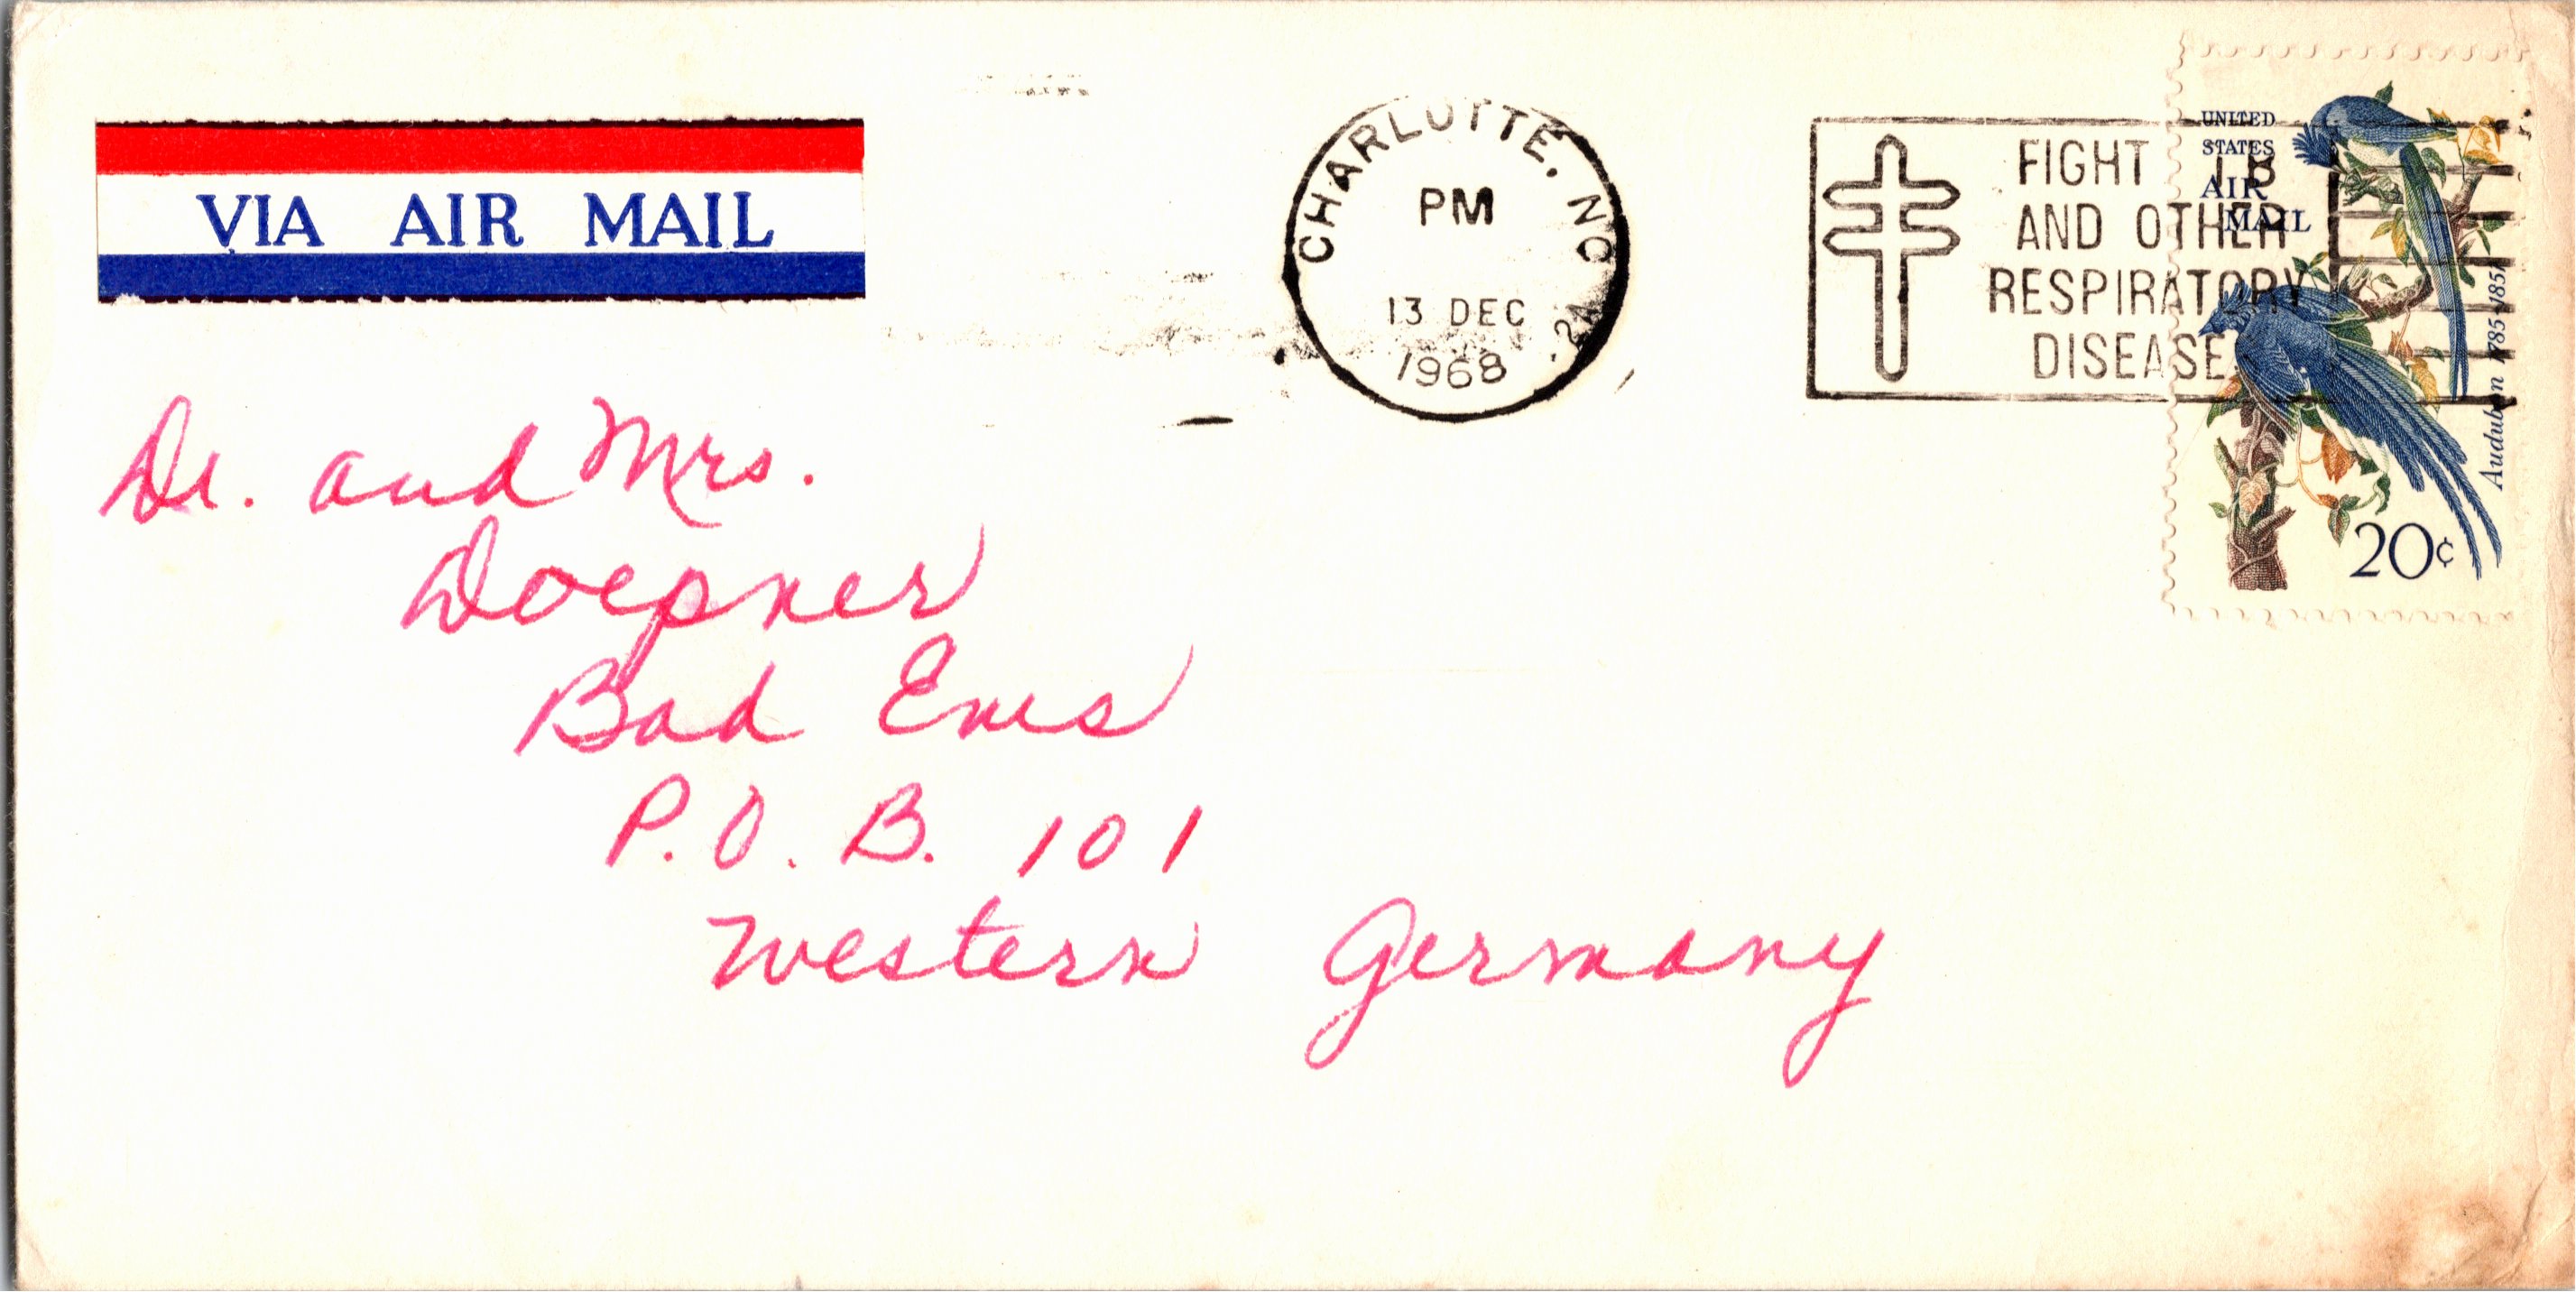 VIA AIR MAIL
CHARLOTTE, NC
PM
13 DEC
1968
FIGHT TB
AND OTHER
RESPIRATORY
DISEASE
UNITED
STATES
AIR
MAIL
Audubon 1785-1851
20¢
Dr. and Mrs.
Doepner
Bad Ems
P.O. B. 101
Western Germany